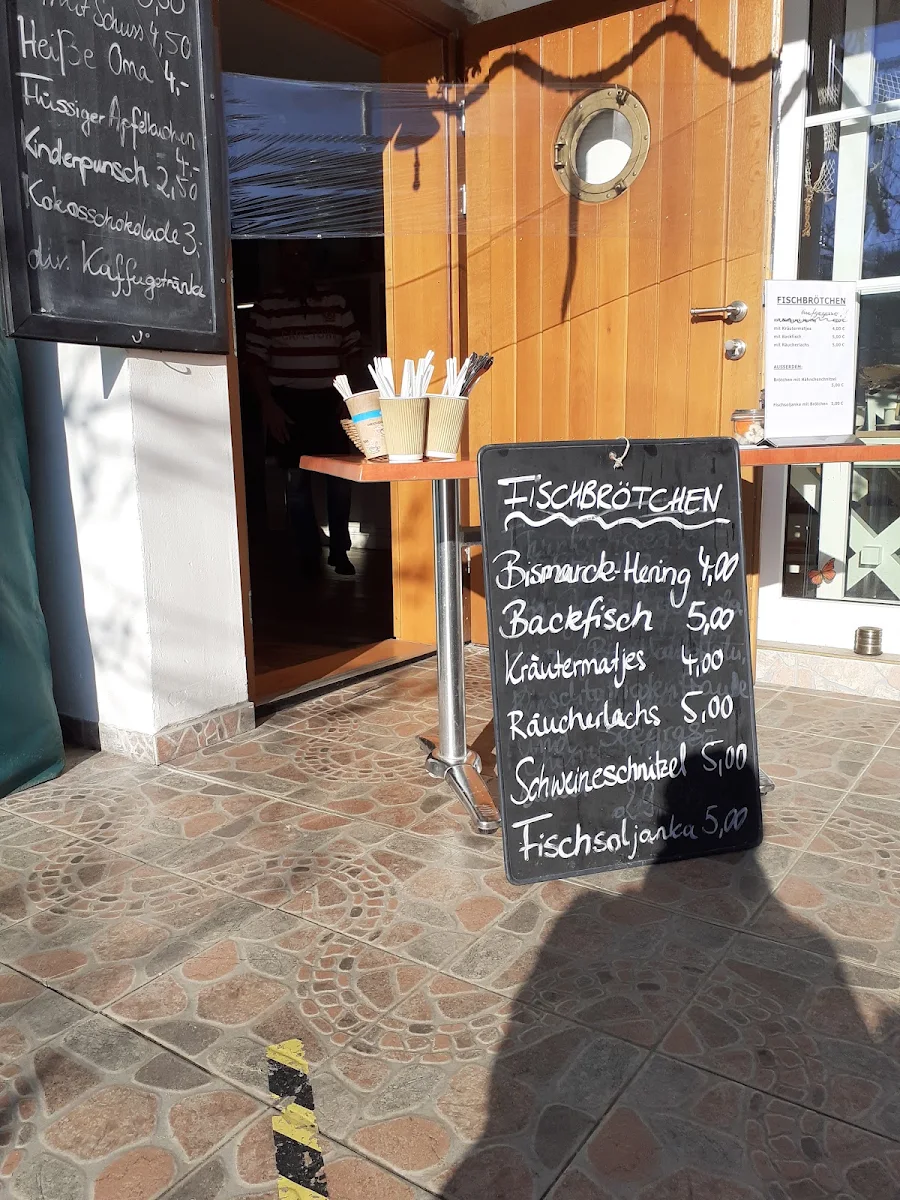 mit Schuss 4,50
Heiße Oma 4,-
Flüssiger Apfelkuchen
4,-
Kinderpunsch 2,50
Kokosschokolade 3,-
div. Kaffeegetränke
FISCHBRÖTCHEN
mit Kräutermatjes 4,00 €
mit Backfisch 5,00 €
mit Räucherlachs 5,00 €
AUSSERDEM:
Brötchen mit Hähnchenschnitzel
5,00 €
Fischsoljanka mit Brötchen 5,00 €
FISCHBRÖTCHEN
Bismarck-Hering 4,00
Backfisch 5,00
Kräutermatjes 4,00
Räucherlachs 5,00
Schweineschnitzel 5,00
Fischsoljanka 5,00